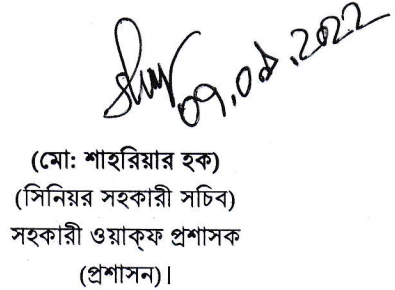 ০৭.০৪.২০২২
(মো: শাহরিয়ার হক)
(সিনিয়র সহকারী সচিব)
সহকারী ওয়াক্‌ফ প্রশাসক
(প্রশাসন)।